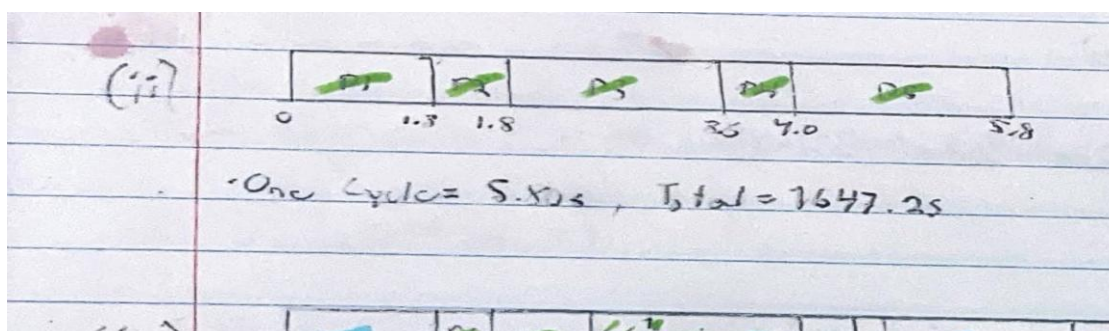 (ii)
P1 P2 P3 P4 P5
0 1.3 1.8 3.5 4.0 5.8
·One Cycle = 5.8s, Total = 1647.2s